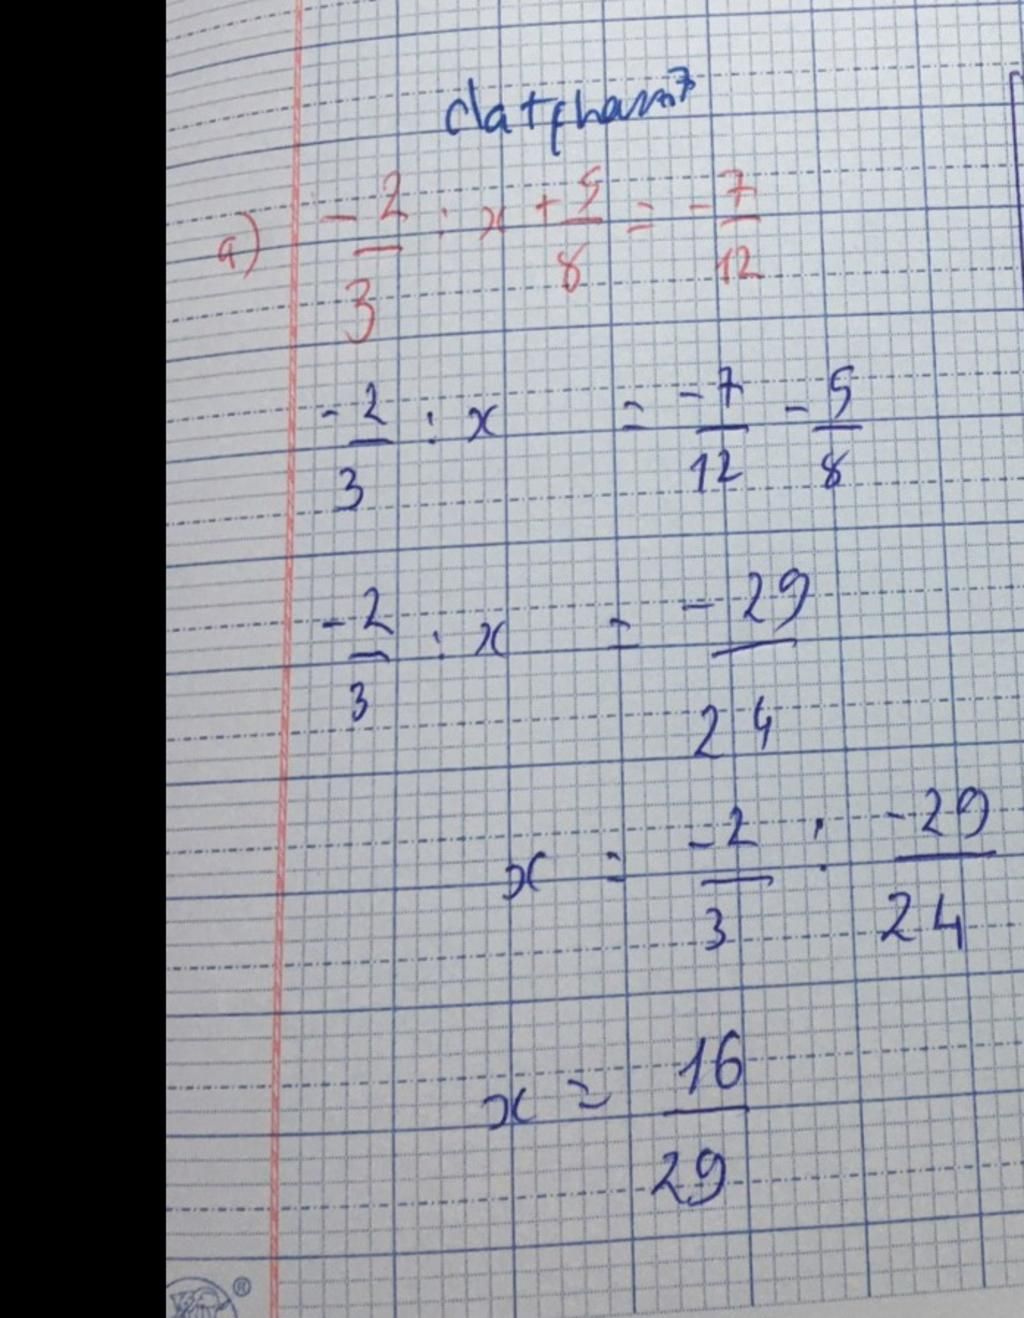 datpham7
a) -2/3 : x + 5/8 = -7/12
-2/3 : x = -7/12 - 5/8
-2/3 : x = -29/24
x = -2/3 : -29/24
x = 16/29
®